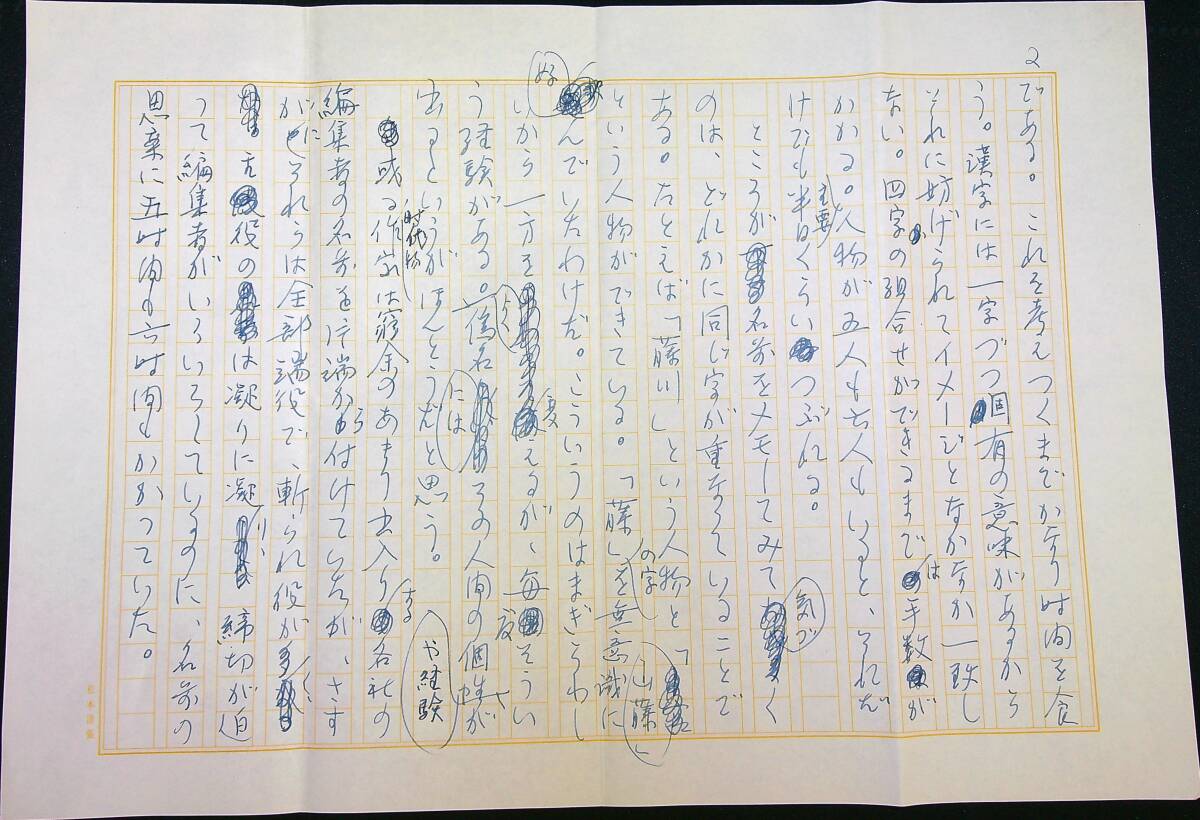 2
である。これを考えつくまでかなり時間を食
う。漢字には一字づつ固有の意味があるから
それに妨げられてイメージとなかなか一致し
ない。四字の組合せができるまでは手数が
かかる。人物が五人も六人もいると、それだ
けでも主要半日くらいつぶれる。
ところが名前をメモしてみて気づく
のは、どれかに同じ字が重なっていることで
ある。たとえば「藤川」という人物と「山藤」
という人物ができている。「藤」の字を無意識に
好んでいたわけだ。こういうのはまぎらわし
いから一方を変えるが、毎度そうい
う経験がよくある。偽名にはその人間の個性や経験が
出るというがほんとうだと思う。
或る時代物作家は窮余のあまり出入りする各社の
編集者の名前を片端から付けていたが、さす
がにそれらは全部端役で、斬られ役が多く、
主役のは凝りに凝り、締切が迫
って編集者がいらいらしているのに、名前の
思案に五時間も六時間もかかっていた。
松本清張